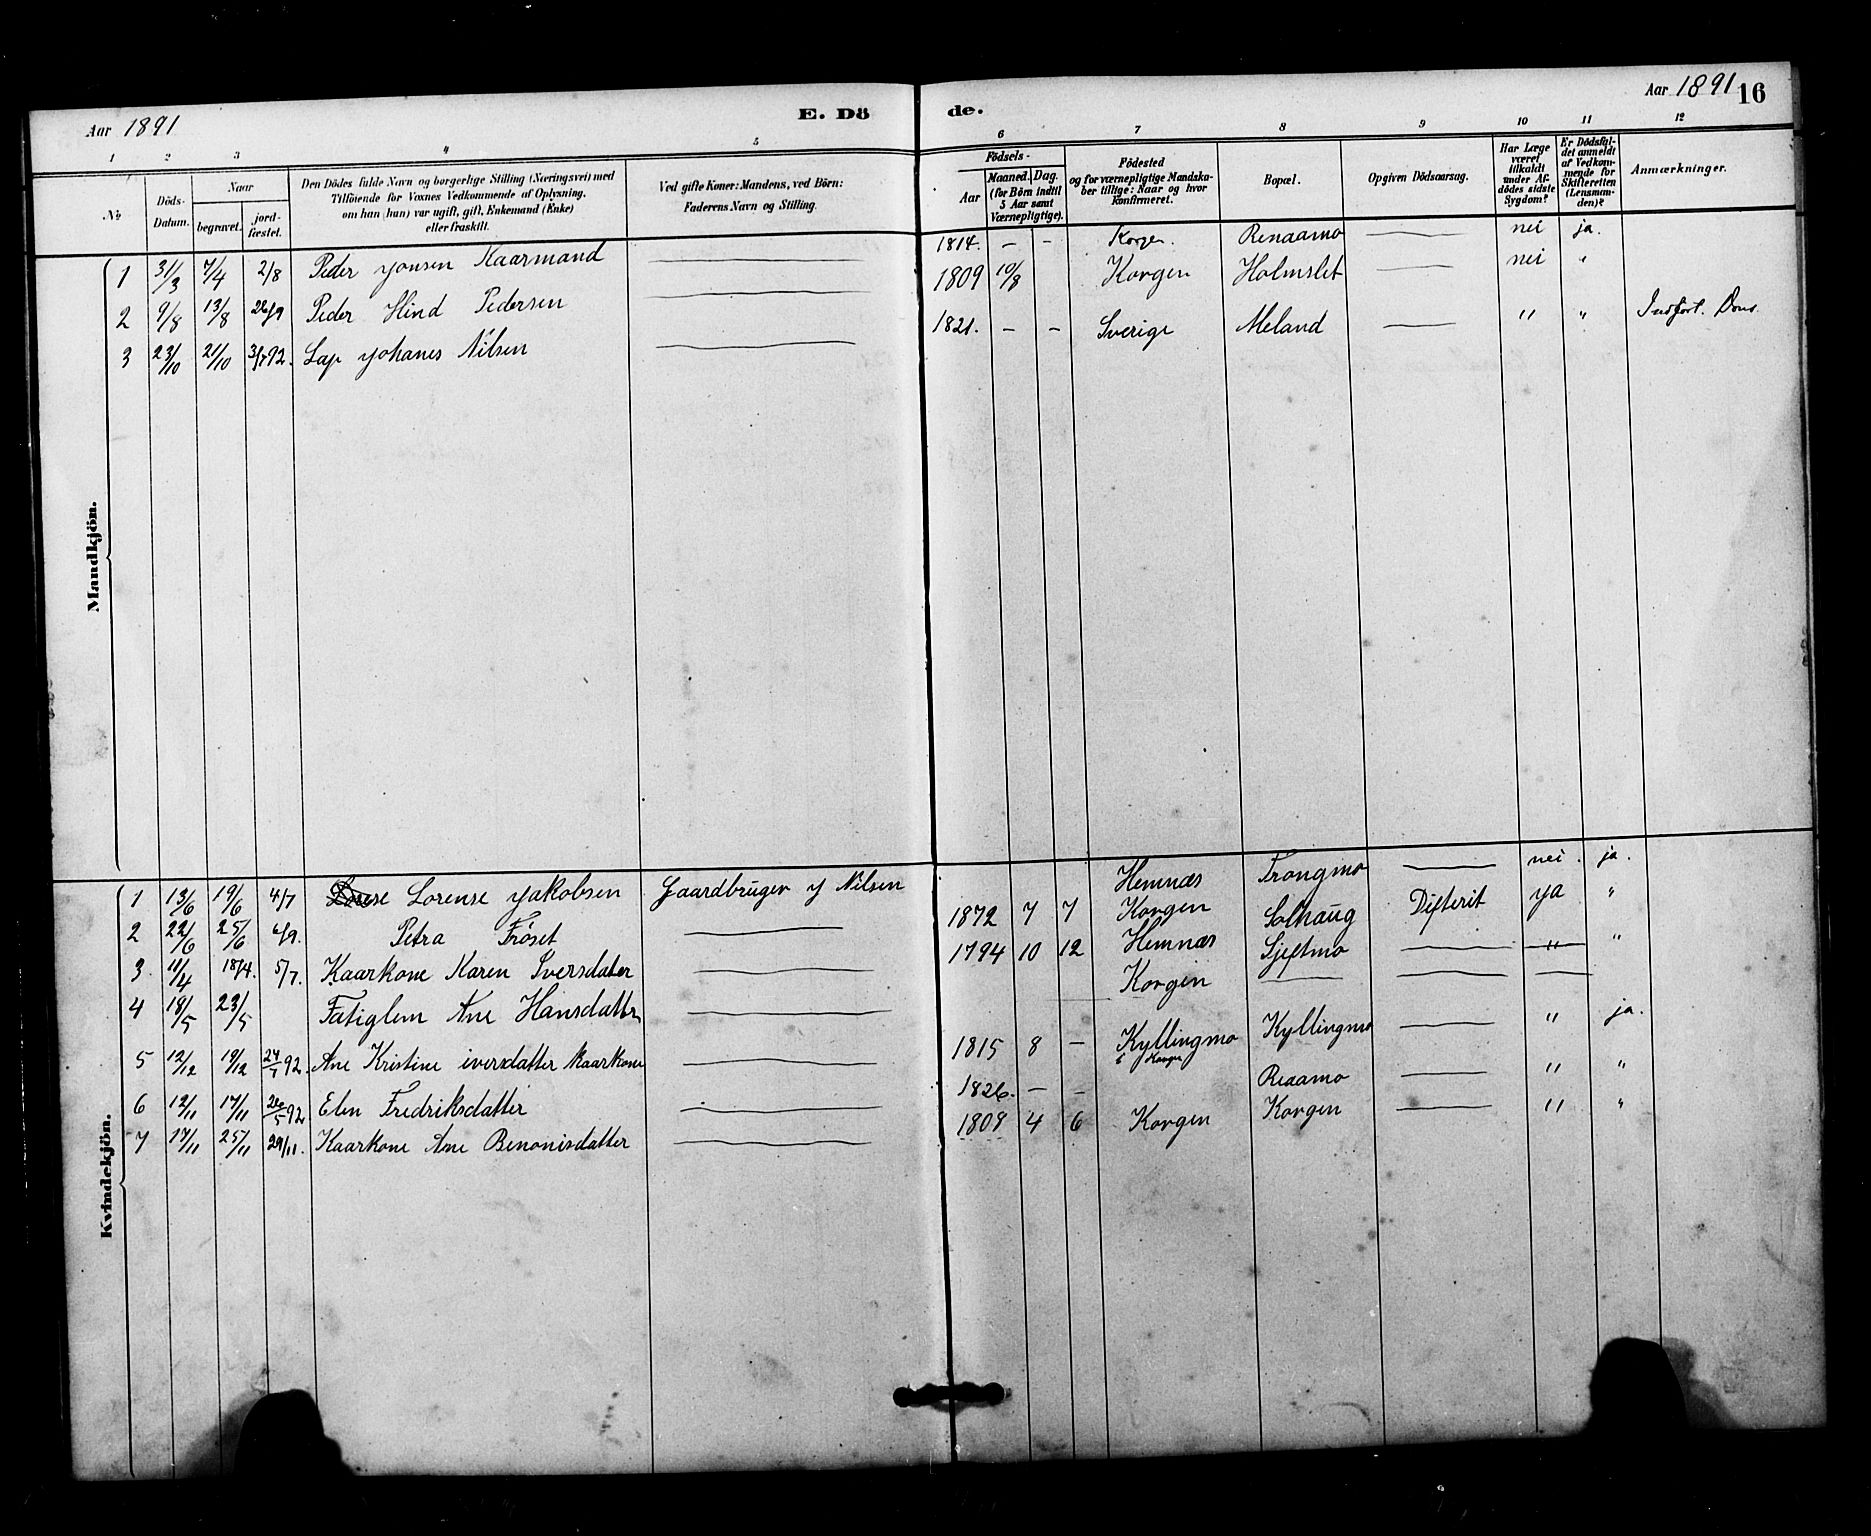 Aar 1891
E. Dö
de.
Aar 1891 16
1 2 3 4 5 6 7 8 9 10 11 12
No
Döds-Datum.
Naar
begravet.
jord-fæstet.
Den Dödes fulde Navn og borgerlige Stilling (Næringsvei) med
Tilföiende for Voxnes Vedkommende af Oplysning,
om han (hun) var ugift, gift, Enkemand (Enke)
eller fraskilt.
Ved gifte Koner: Mandens, ved Börn:
Faderens Navn og Stilling.
Födsels-
Aar
Maaned. Dag.
(for Börn indtil
5 Aar samt
Værnepligtige).
Födested
og for værnepligtige Mandska-
ber tillige: Naar og hvor
Konfirmeret.
Bopæl.
Opgiven Dödsaarsag.
Har Læge
været
tilkaldt
under Af-
dödes sidste
Sygdom?
Er Dödsfal-
det anmeldt
af Vedkom-
mende for
Skifteretten
(Lensman-
den)?
Anmærkninger.
Mandkjön.
1 31/3 7/4 2/8 Peder Jonsen Kaarmand — 1814. — — Korgen. Renaamo — nei ja.
2 9/8 13/8 26/9 Peder Hind Pedersen — 1809 10/8 Korgen Holmslet — nei "
3 23/10 21/10 3/7 92. Lap Johanes Nilsen — 1821. — — Sverige Meland — " " Indført.
Kvindekjön.
1 13/6 19/6 4/7 Lorense Jakobsen Gaardbruger J Nilsen Hemnæs Trongmo — nei. ja.
2 22/6 25/6 6/9. Petra Frøset — 1872 7 7 Korgen Solhaug Difterit ja "
3. 11/4 18/4. 5/7. Kaarkone Karen Iversdater — 1794 10 12 Hemnæs Sjeftmo — " "
4 18/5 23/5 Fatiglem Ane Hansdatter — Korgen — — —
5 12/12 19/12 24/7 92. Ane Kristine iversdatter Kaarkone — 1815 8 — Kyllingmo i Korgen Kyllingmo — " ja.
6 12/11 17/11 26/5 92 Elen Fredriksdatter — 1826. — — Reaamo — " "
7 17/11 25/11 29/11. Kaarkone Ane Benonisdatter — 1809 4 6 Korgen Korgen — " "